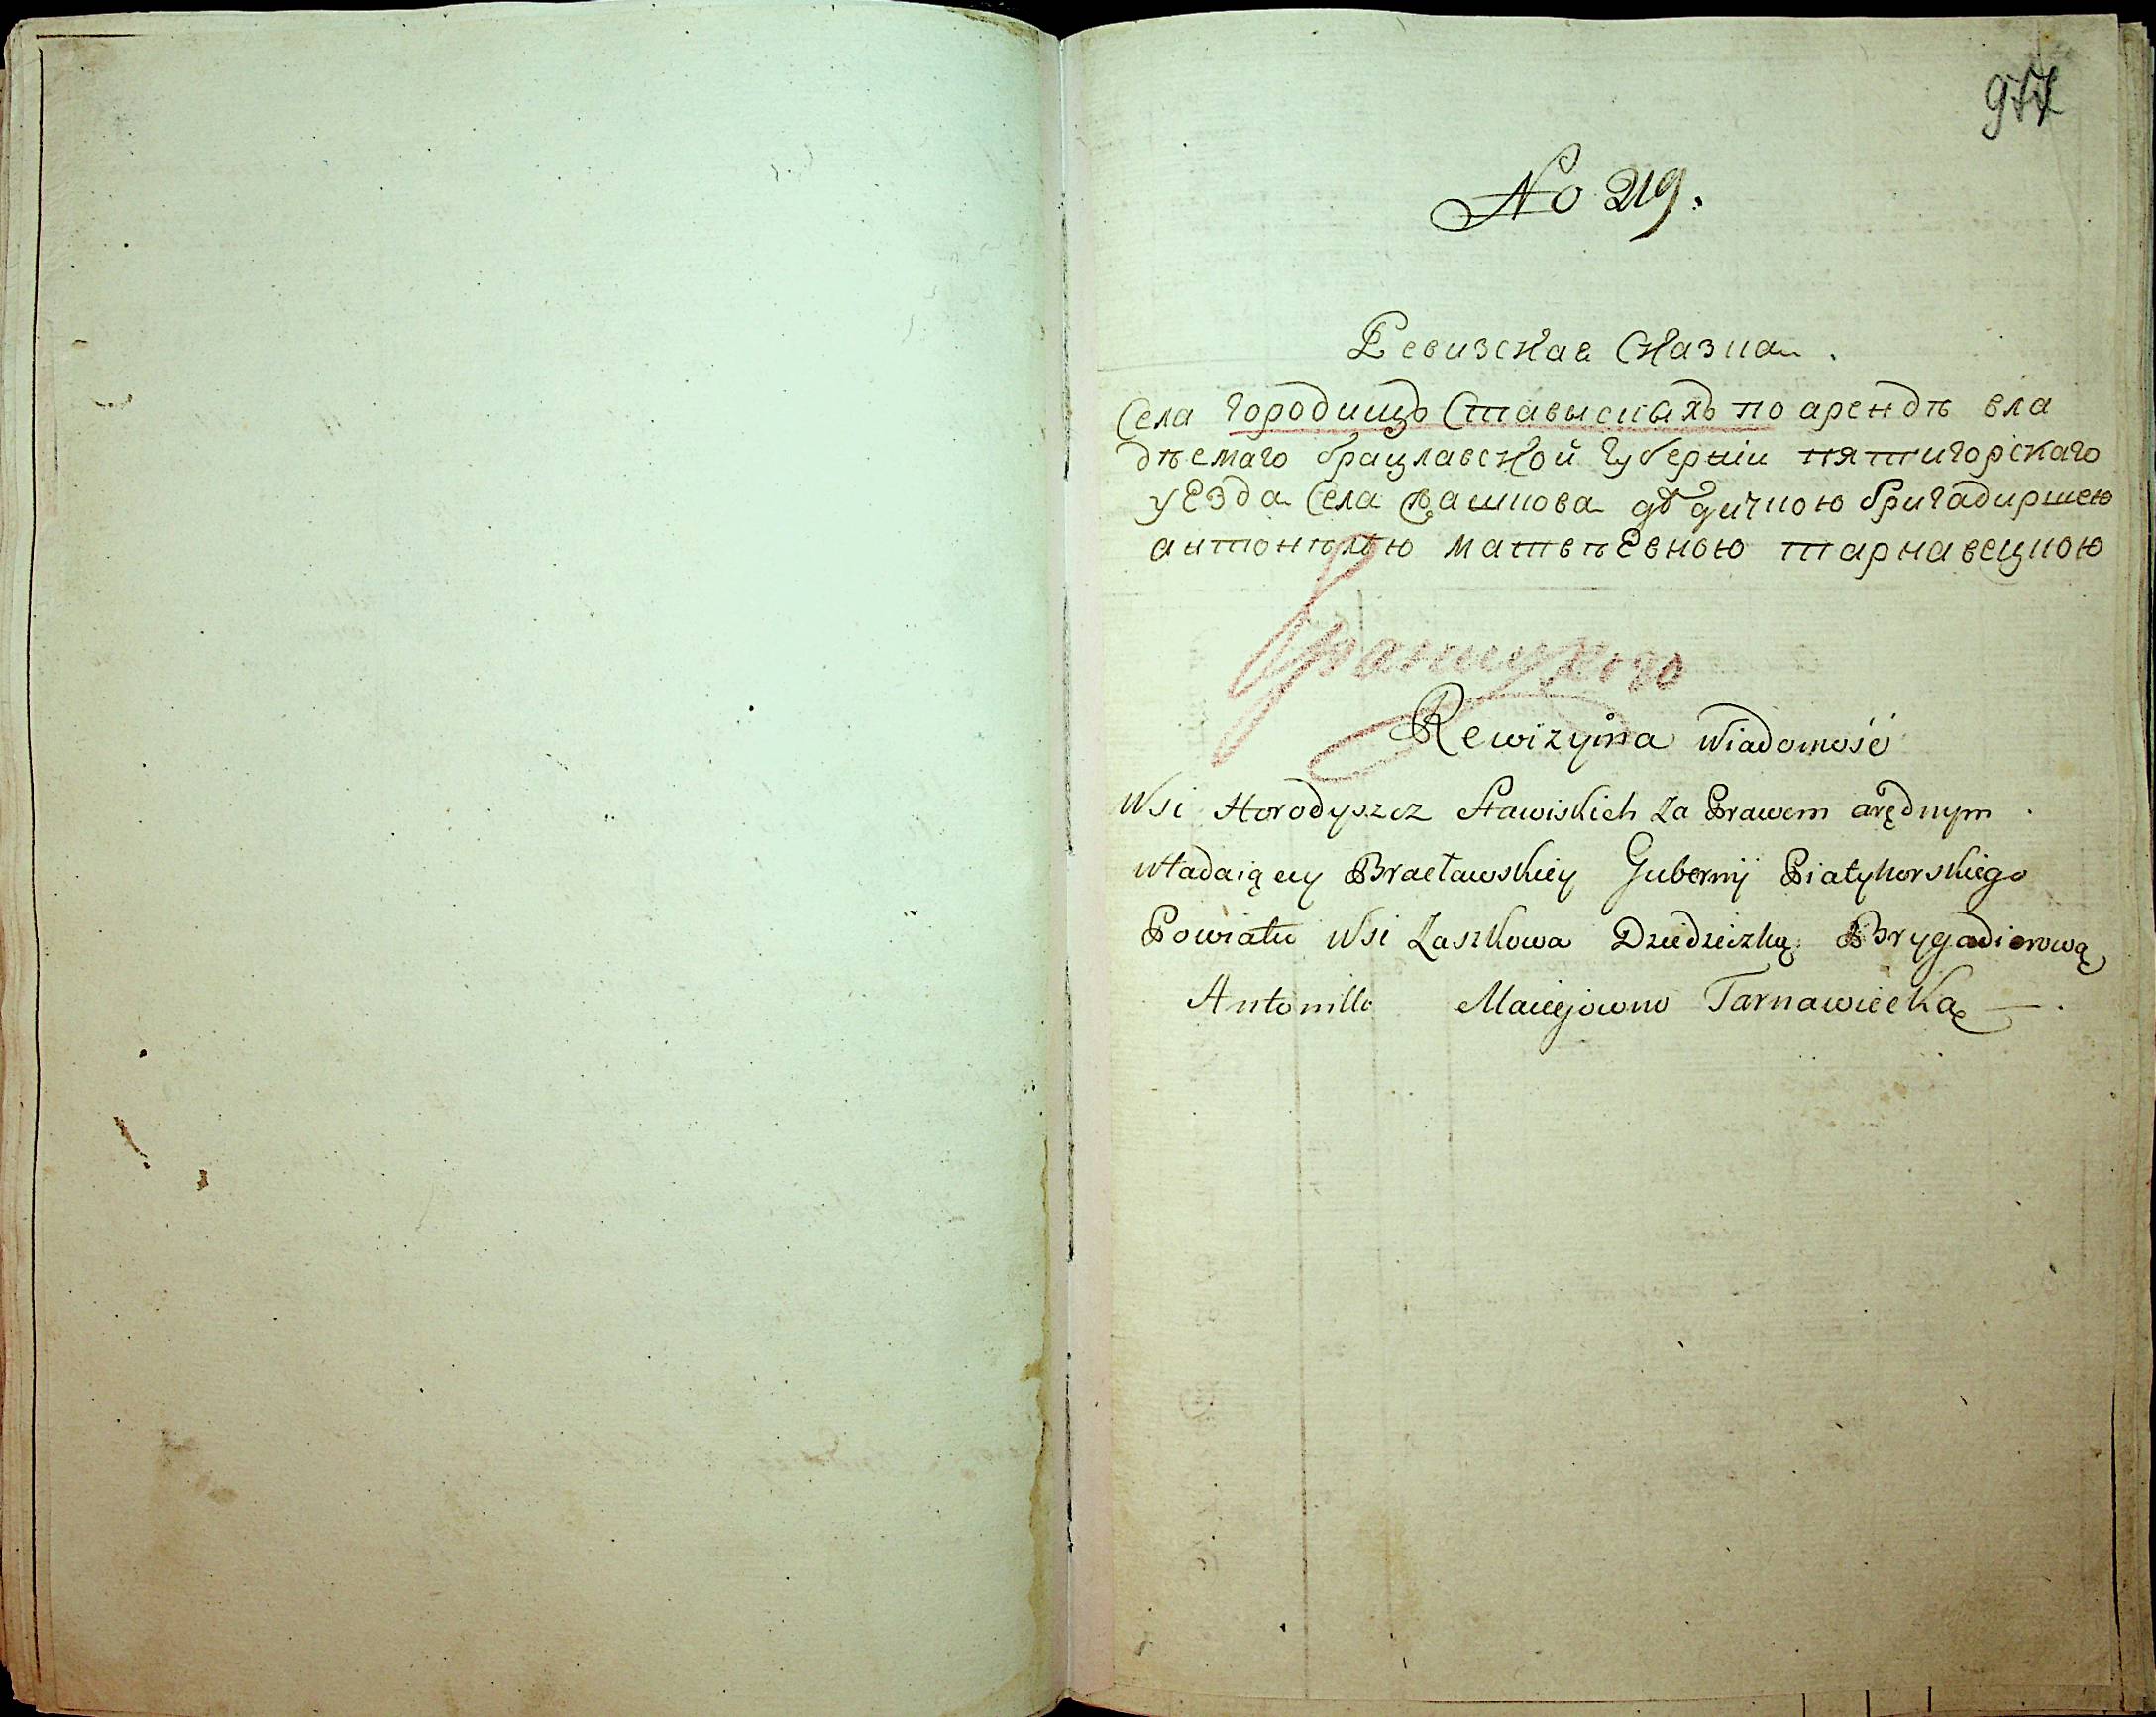 977
No 219.
Ревизская Сказка.
Села Городищъ Ставыскихъ по арендѣ вла
дѣемаго брацлавской губернїи пятигорскаго
уезда Села Жашкова дѣдичкою бригадиршею
антонѣлею матвѣевною тарнавецкою
Rewizyina Wiadomość
Wsi Horodyszcz Stawiskich Za Prawem arędnym
władaiącey Bracławskiey Gubernij Piatyhorskiego
Powiatu Wsi Zaszkowa Dziedziczką Brygadierową
Antonillo Maciejowno Tarnawiecką